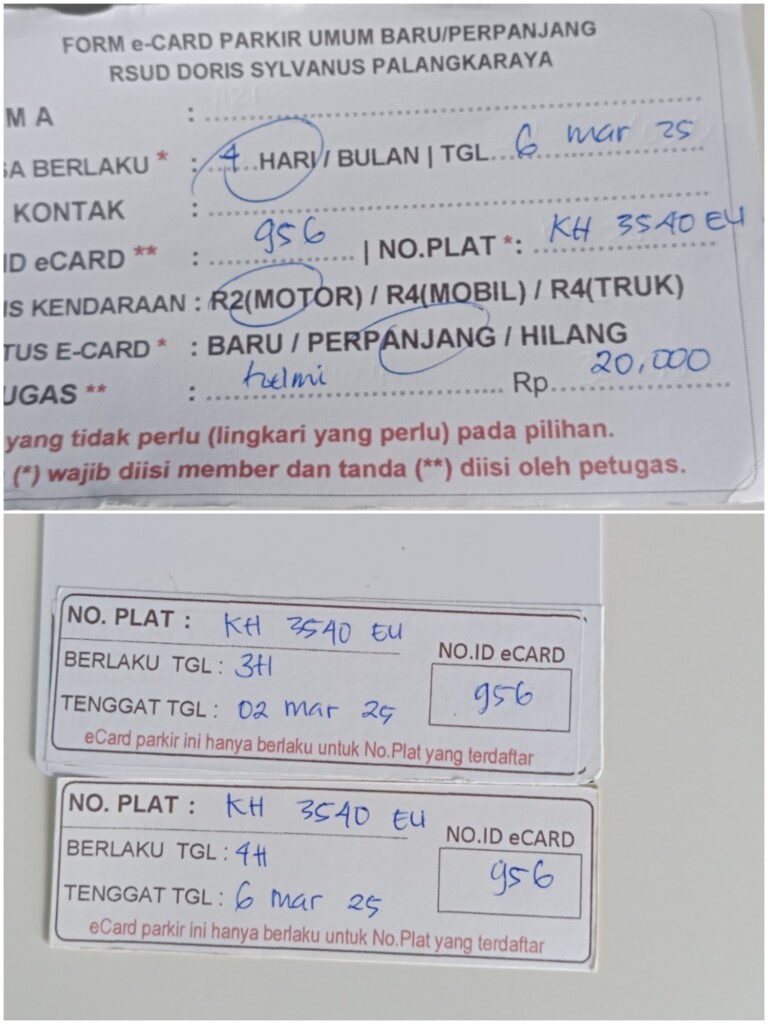 FORM e-CARD PARKIR UMUM BARU/PERPANJANG
RSUD DORIS SYLVANUS PALANGKARAYA
MA :
SA BERLAKU * : 4 HARI / BULAN | TGL. 6 mar 25
KONTAK :
ID eCARD ** : 956 | NO.PLAT *: KH 3540 EU
IS KENDARAAN : R2(MOTOR) / R4(MOBIL) / R4(TRUK)
TUS E-CARD * : BARU / PERPANJANG / HILANG
UGAS ** : helmi Rp. 20,000
yang tidak perlu (lingkari yang perlu) pada pilihan.
(*) wajib diisi member dan tanda (**) diisi oleh petugas.
NO. PLAT : KH 3540 EU
BERLAKU TGL : 3H
TENGGAT TGL : 02 mar 25
NO.ID eCARD
956
eCard parkir ini hanya berlaku untuk No.Plat yang terdaftar
NO. PLAT : KH 3540 EU
BERLAKU TGL : 4H
TENGGAT TGL : 6 mar 25
NO.ID eCARD
956
eCard parkir ini hanya berlaku untuk No.Plat yang terdaftar